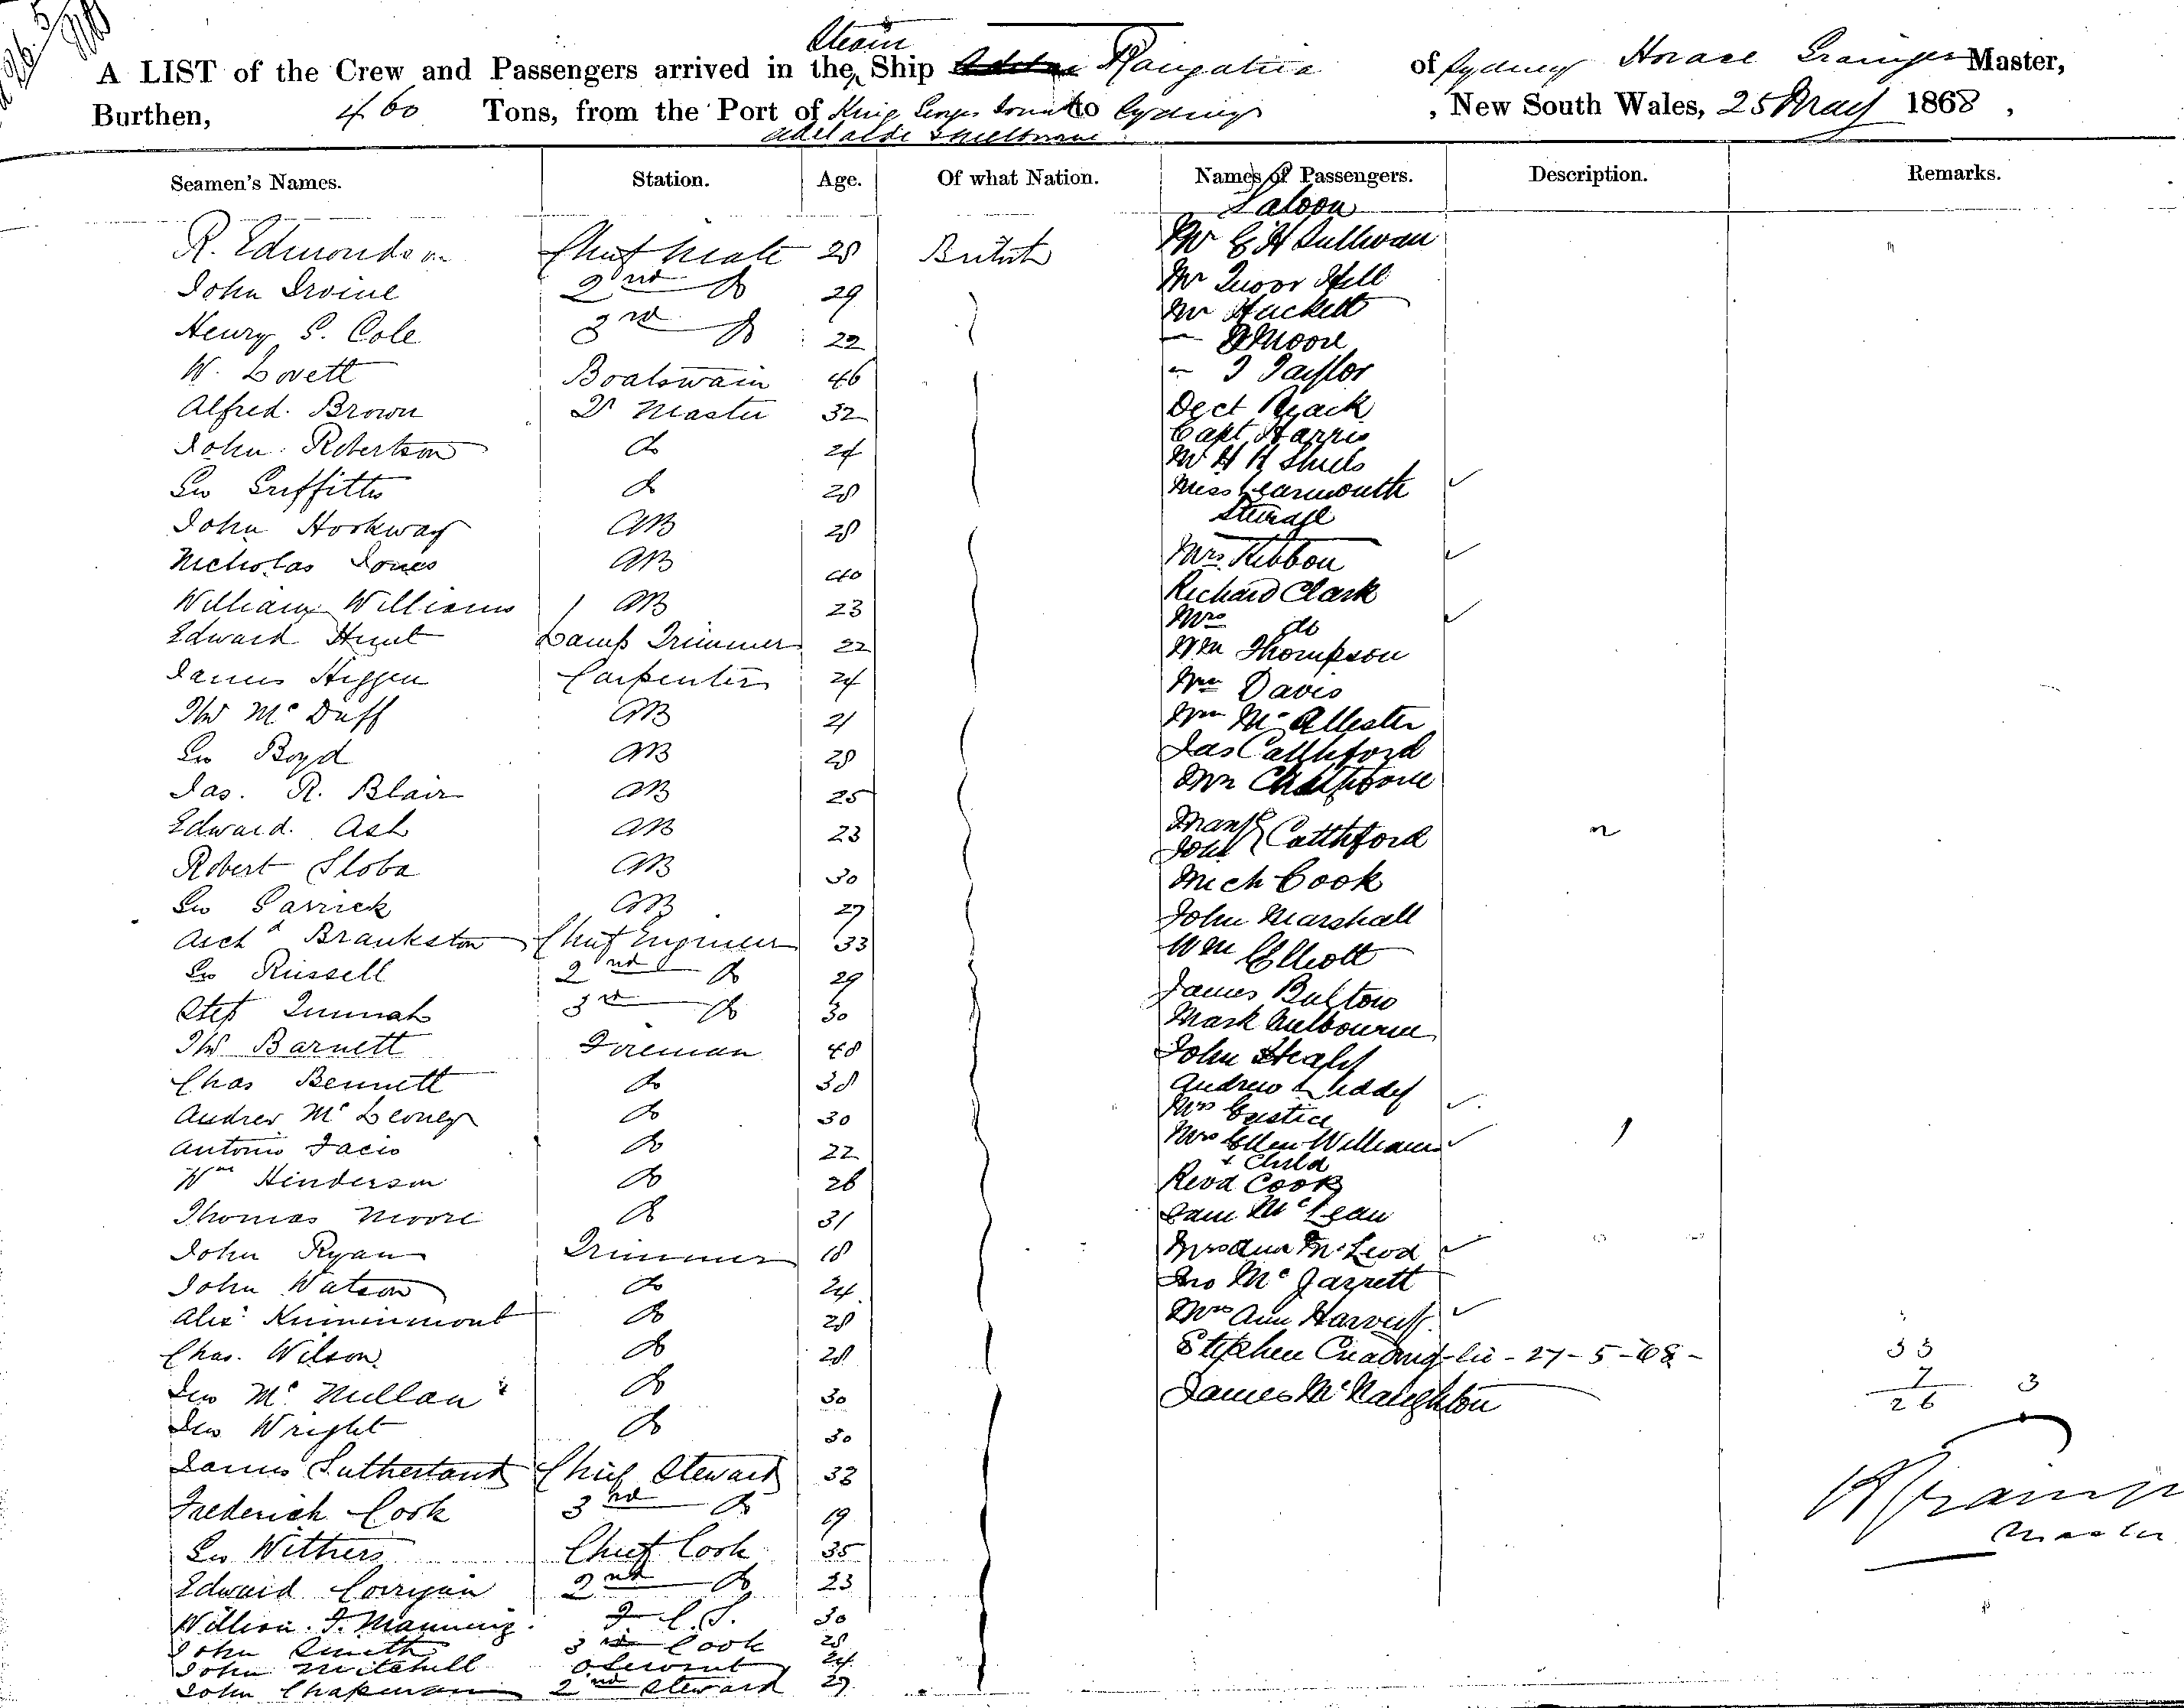 Steam
A LIST of the Crew and Passengers arrived in the Ship Rangatira of Sydney Horace Grainger Master,
Burthen, 460 Tons, from the Port of King Georges Sound to Sydney, New South Wales, 25 May 1868,
Adelaide Melbourne
Seamen's Names. Station. Age. Of what Nation. Names of Passengers. Description. Remarks.
Saloon
R. Edmondson Chief Mate 28 British Mr Sullivan
John Irvine 2nd do 29 Mr Hill
Henry S. Cole 3rd do 22 Mr Hackett
W. Lovett Boatswain 46 Moore
Alfred. Brown Qr Master 32 Taylor
John Robertson do 24 Capt Harris
Geo Griffiths do 28 Mr Miss Learmouth
John Hookway AB 28 Steerage
Nicholas Jones AB 40 Mrs Kibbon
William Williams AB 23 Richard Clark
Edward Hunt Lamp Trimmer 22 Mrs do
James Carpenter 24 Wm Thompson
Wm Davis
Thos Mc Duff AB 21 Wm Mc Allester
Geo Boyd AB 28 Jas Catthford
Jas. R. Blair AB 25
Edward. Ash AB 23 John Catthford
Robert AB 30 Mich Cook
Geo Garrick AB 27 John Marshall
Archd Brankston Chief Engineer 33 Wm Elliott
Geo Russell 2nd do 29 James
Step 3rd do 30 Mark Milbourne
Thos Barnett Fireman 48 John Healy
Chas Bennett do 38 Andrew
Andrew Mc do 30 Mrs Eustice
Antonio Facio do 22 Mrs Ellen Williams
& Child
Wm Henderson do 26 Revd Cook
Thomas Moore do 31 Sam McLean
John Ryan Trimmer 18 Mrs Ann McLeod
John Watson do 24 Jno Mc Jarrett
Alex do 28 Mrs Ann
Chas. Wilson do 28 Stephen 27-5-68 33
7 3
Jno Mc Mullan do 30 James McNaughton 26
Jno Wright do 30
James Sutherland Chief Steward 33
Frederick Cook 3rd do 19 Grainger
Geo Withers Chief Cook 35 Master
Edward Corrigan 2nd do 23
William. J. Manning 30
John Smith 3rd Cook 28
John Mitchell 24
John Chapman 2nd Steward 27